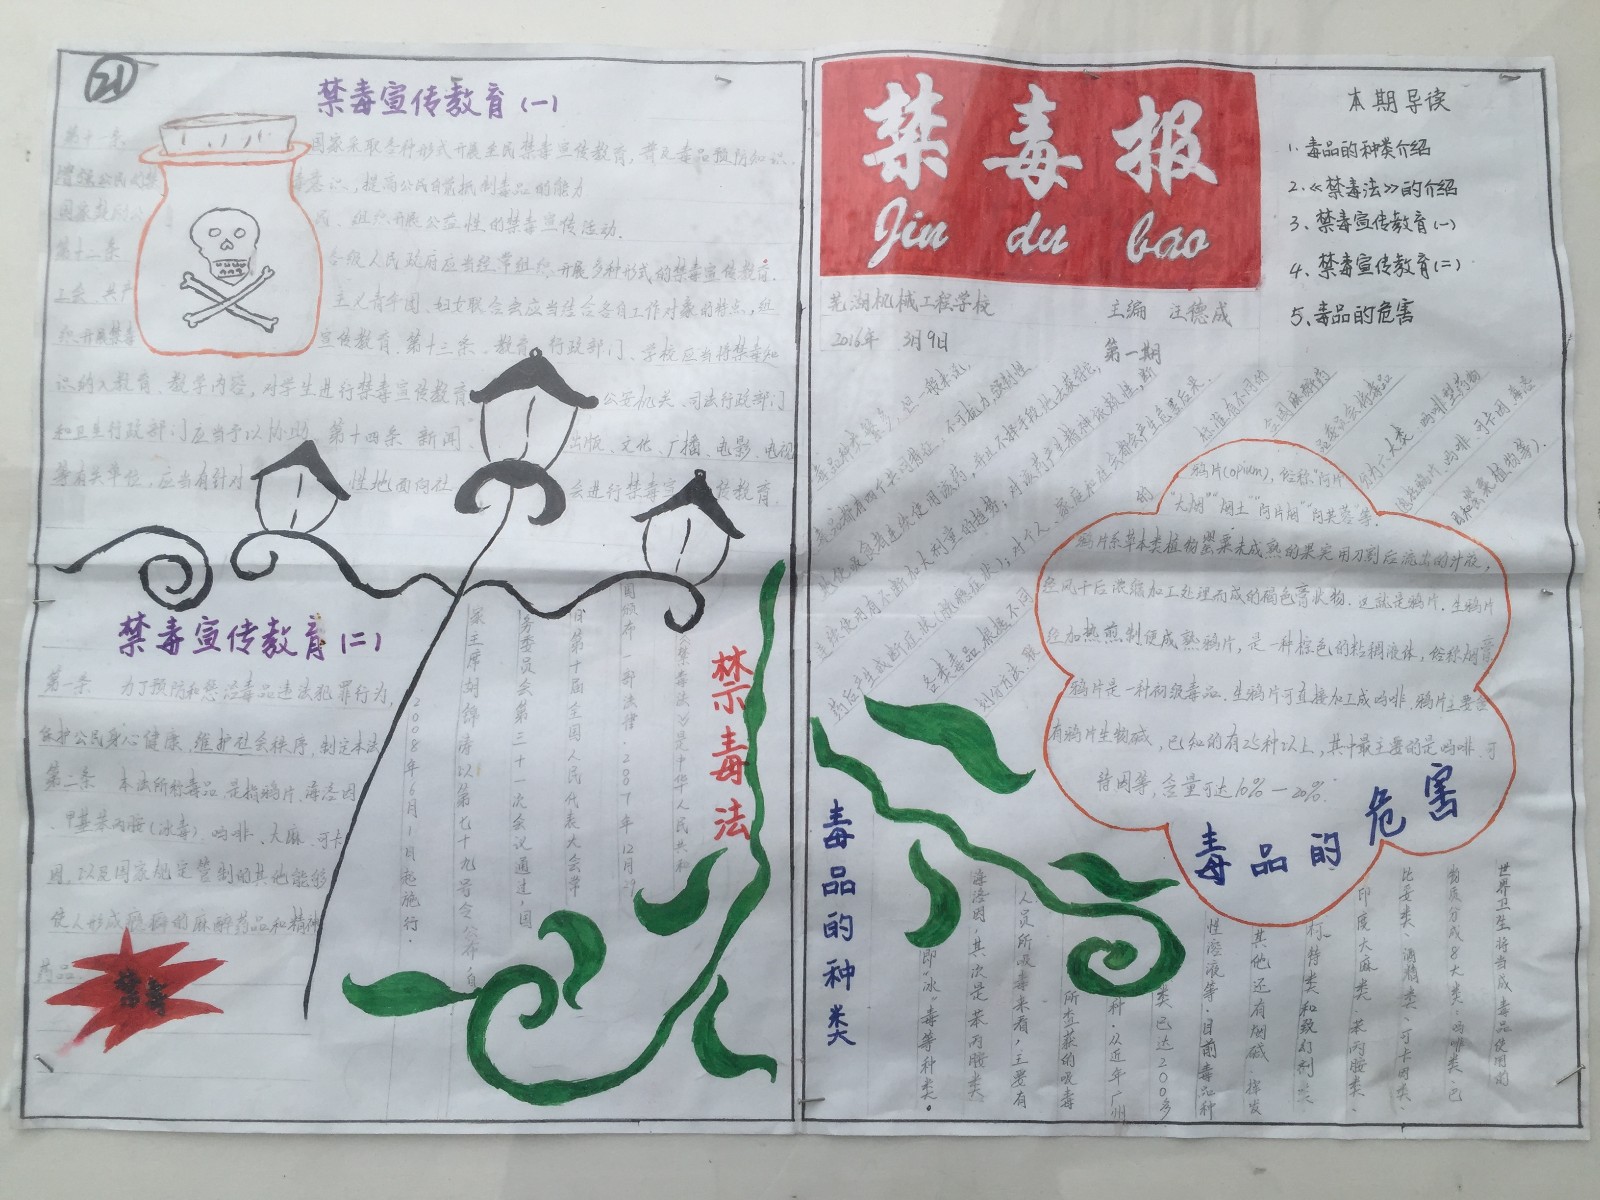 21
禁毒宣传教育(一)
第十一条 国家采取各种形式开展全民禁毒宣传教育,普及毒品预防知识
增强公民的禁毒意识,提高公民自觉抵制毒品的能力
国家鼓励公民、组织开展公益性的禁毒宣传活动.
第十二条 各级人民政府应当经常组织开展多种形式的禁毒宣传教育.
工会、共产主义青年团、妇女联合会应当结合各自工作对象的特点,组
织开展禁毒宣传教育.第十三条.教育、行政部门、学校应当将禁毒知
识纳入教育、教学内容,对学生进行禁毒宣传教育 公安机关、司法行政部门
和卫生行政部门应当予以协助 第十四条 新闻、出版、文化、广播、电影、电视
等有关单位,应当有针对性地面向社会进行禁毒宣传教育.
禁毒宣传教育(二)
第一条 为了预防和惩治毒品违法犯罪行为,
保护公民身心健康,维护社会秩序,制定本法
第二条 本法所称毒品,是指鸦片、海洛因
、甲基苯丙胺(冰毒)、吗啡、大麻、可卡
因,以及国家规定管制的其他能够
使人形成瘾癖的麻醉药品和精神
药品.
禁毒
禁毒法
禁毒法》是中华人民共和
国颁布一部法律.2007年12月29
日第十届全国人民代表大会常
务委员会第三十一次会议通过,国
家主席胡锦涛以第七十九号令公布自
2008年6月1日起施行.
禁毒报
Jin du bao
芜湖机械工程学校 主编 汪德成
2016年 3月9日 第一期
本期导读
1.毒品的种类介绍
2.《禁毒法》的介绍
3、禁毒宣传教育(一)
4、禁毒宣传教育(二)
5、毒品的危害
毒品种类繁多,但一般来说,
毒品都有四个共同特征:不可抗力,强制性
地使吸食者连续使用该药,并且不择手段地去获得它;
连续使用有不断加大剂量的趋势;对该药产生精神依赖性,断
药后产生戒断症状(脱瘾症状);对个人、家庭和社会都会产生危害后果.
各类毒品根据不同的
鸦片(opium),俗称"阿片
"大烟""烟土""阿片烟""阿芙蓉"等.
鸦片系草本类植物罂粟未成熟的果实用刀割后流出的汁液,
经风干后浓缩加工处理而成的褐色膏状物.这就是鸦片.生鸦片
经加热煎制便成熟鸦片,是一种棕色的粘稠液体,俗称烟膏
鸦片是一种初级毒品.生鸦片可直接加工成吗啡.鸦片主要含
有鸦片生物碱,已知的有25种以上,其中最主要的是吗啡、可
待因等,含量可达10%—20%.
毒品的危害
毒品的种类
世界卫生将当成毒品使用的
物质分成8大类:吗啡类、巴
比妥类、酒精类、可卡因类、
印度大麻类、苯丙胺类、
柯特类和致幻剂类
其他还有烟碱、挥发
性溶液等.目前毒品种
类已达200多
种.从近年广州
所查获的吸毒
人员所吸毒来看,主要有
海洛因,其次是苯丙胺类
即"冰"毒等种类。